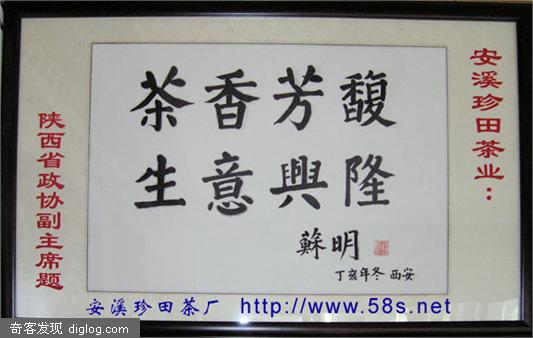 安溪珍田茶业：
茶香芳馥
生意興隆
蘇明
丁亥年冬 西安
陕西省政协副主席题
安溪珍田茶厂 http://www.58s.net
奇客发现 diglog.com